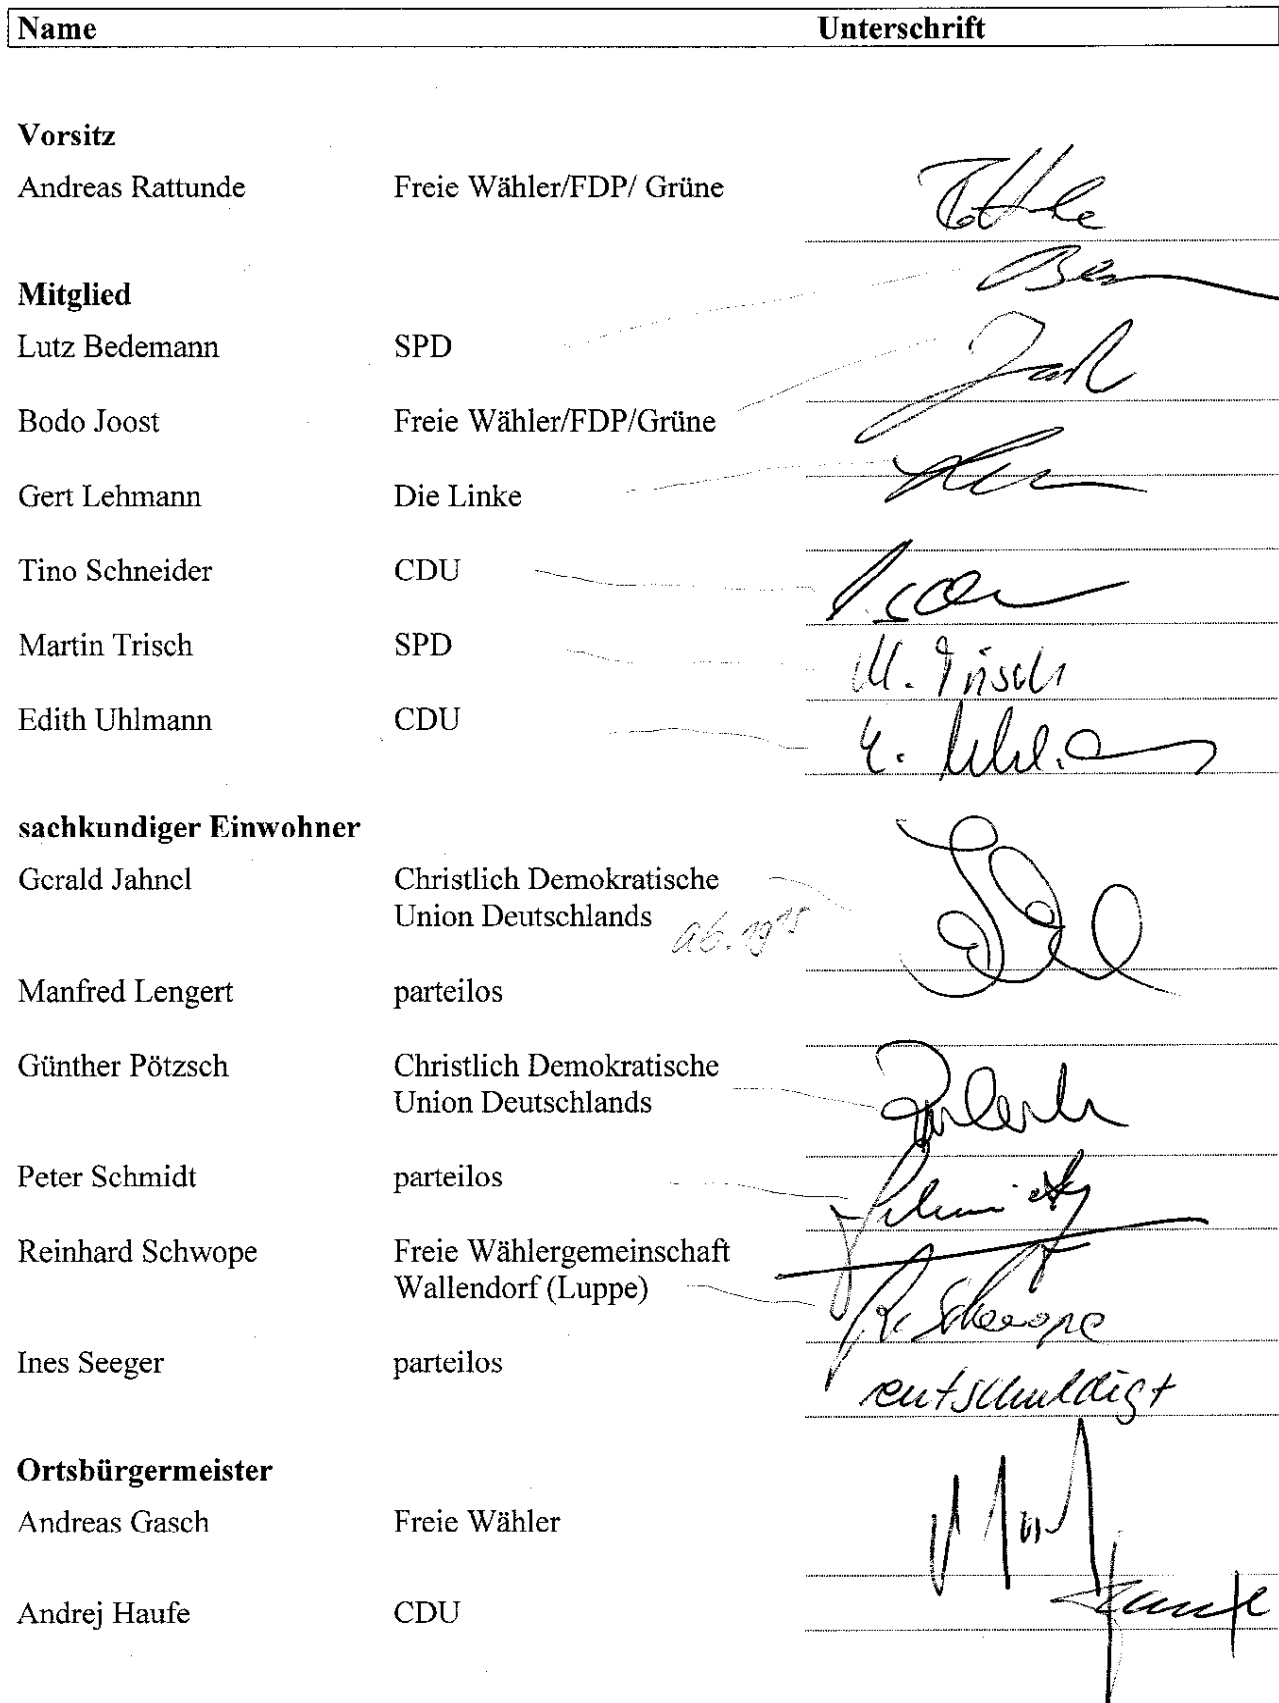 Name Unterschrift
Vorsitz
Andreas Rattunde Freie Wähler/FDP/ Grüne
Mitglied
Lutz Bedemann SPD
Bodo Joost Freie Wähler/FDP/Grüne
Gert Lehmann Die Linke
Tino Schneider CDU
Martin Trisch SPD M. Trisch
Edith Uhlmann CDU
sachkundiger Einwohner
Gerald Jahnel Christlich Demokratische
Union Deutschlands ab. 19 15
Manfred Lengert parteilos
Günther Pötzsch Christlich Demokratische
Union Deutschlands
Peter Schmidt parteilos
Reinhard Schwope Freie Wählergemeinschaft
Wallendorf (Luppe) R. Schwope
Ines Seeger parteilos entschuldigt
Ortsbürgermeister
Andreas Gasch Freie Wähler
Andrej Haufe CDU Haufe